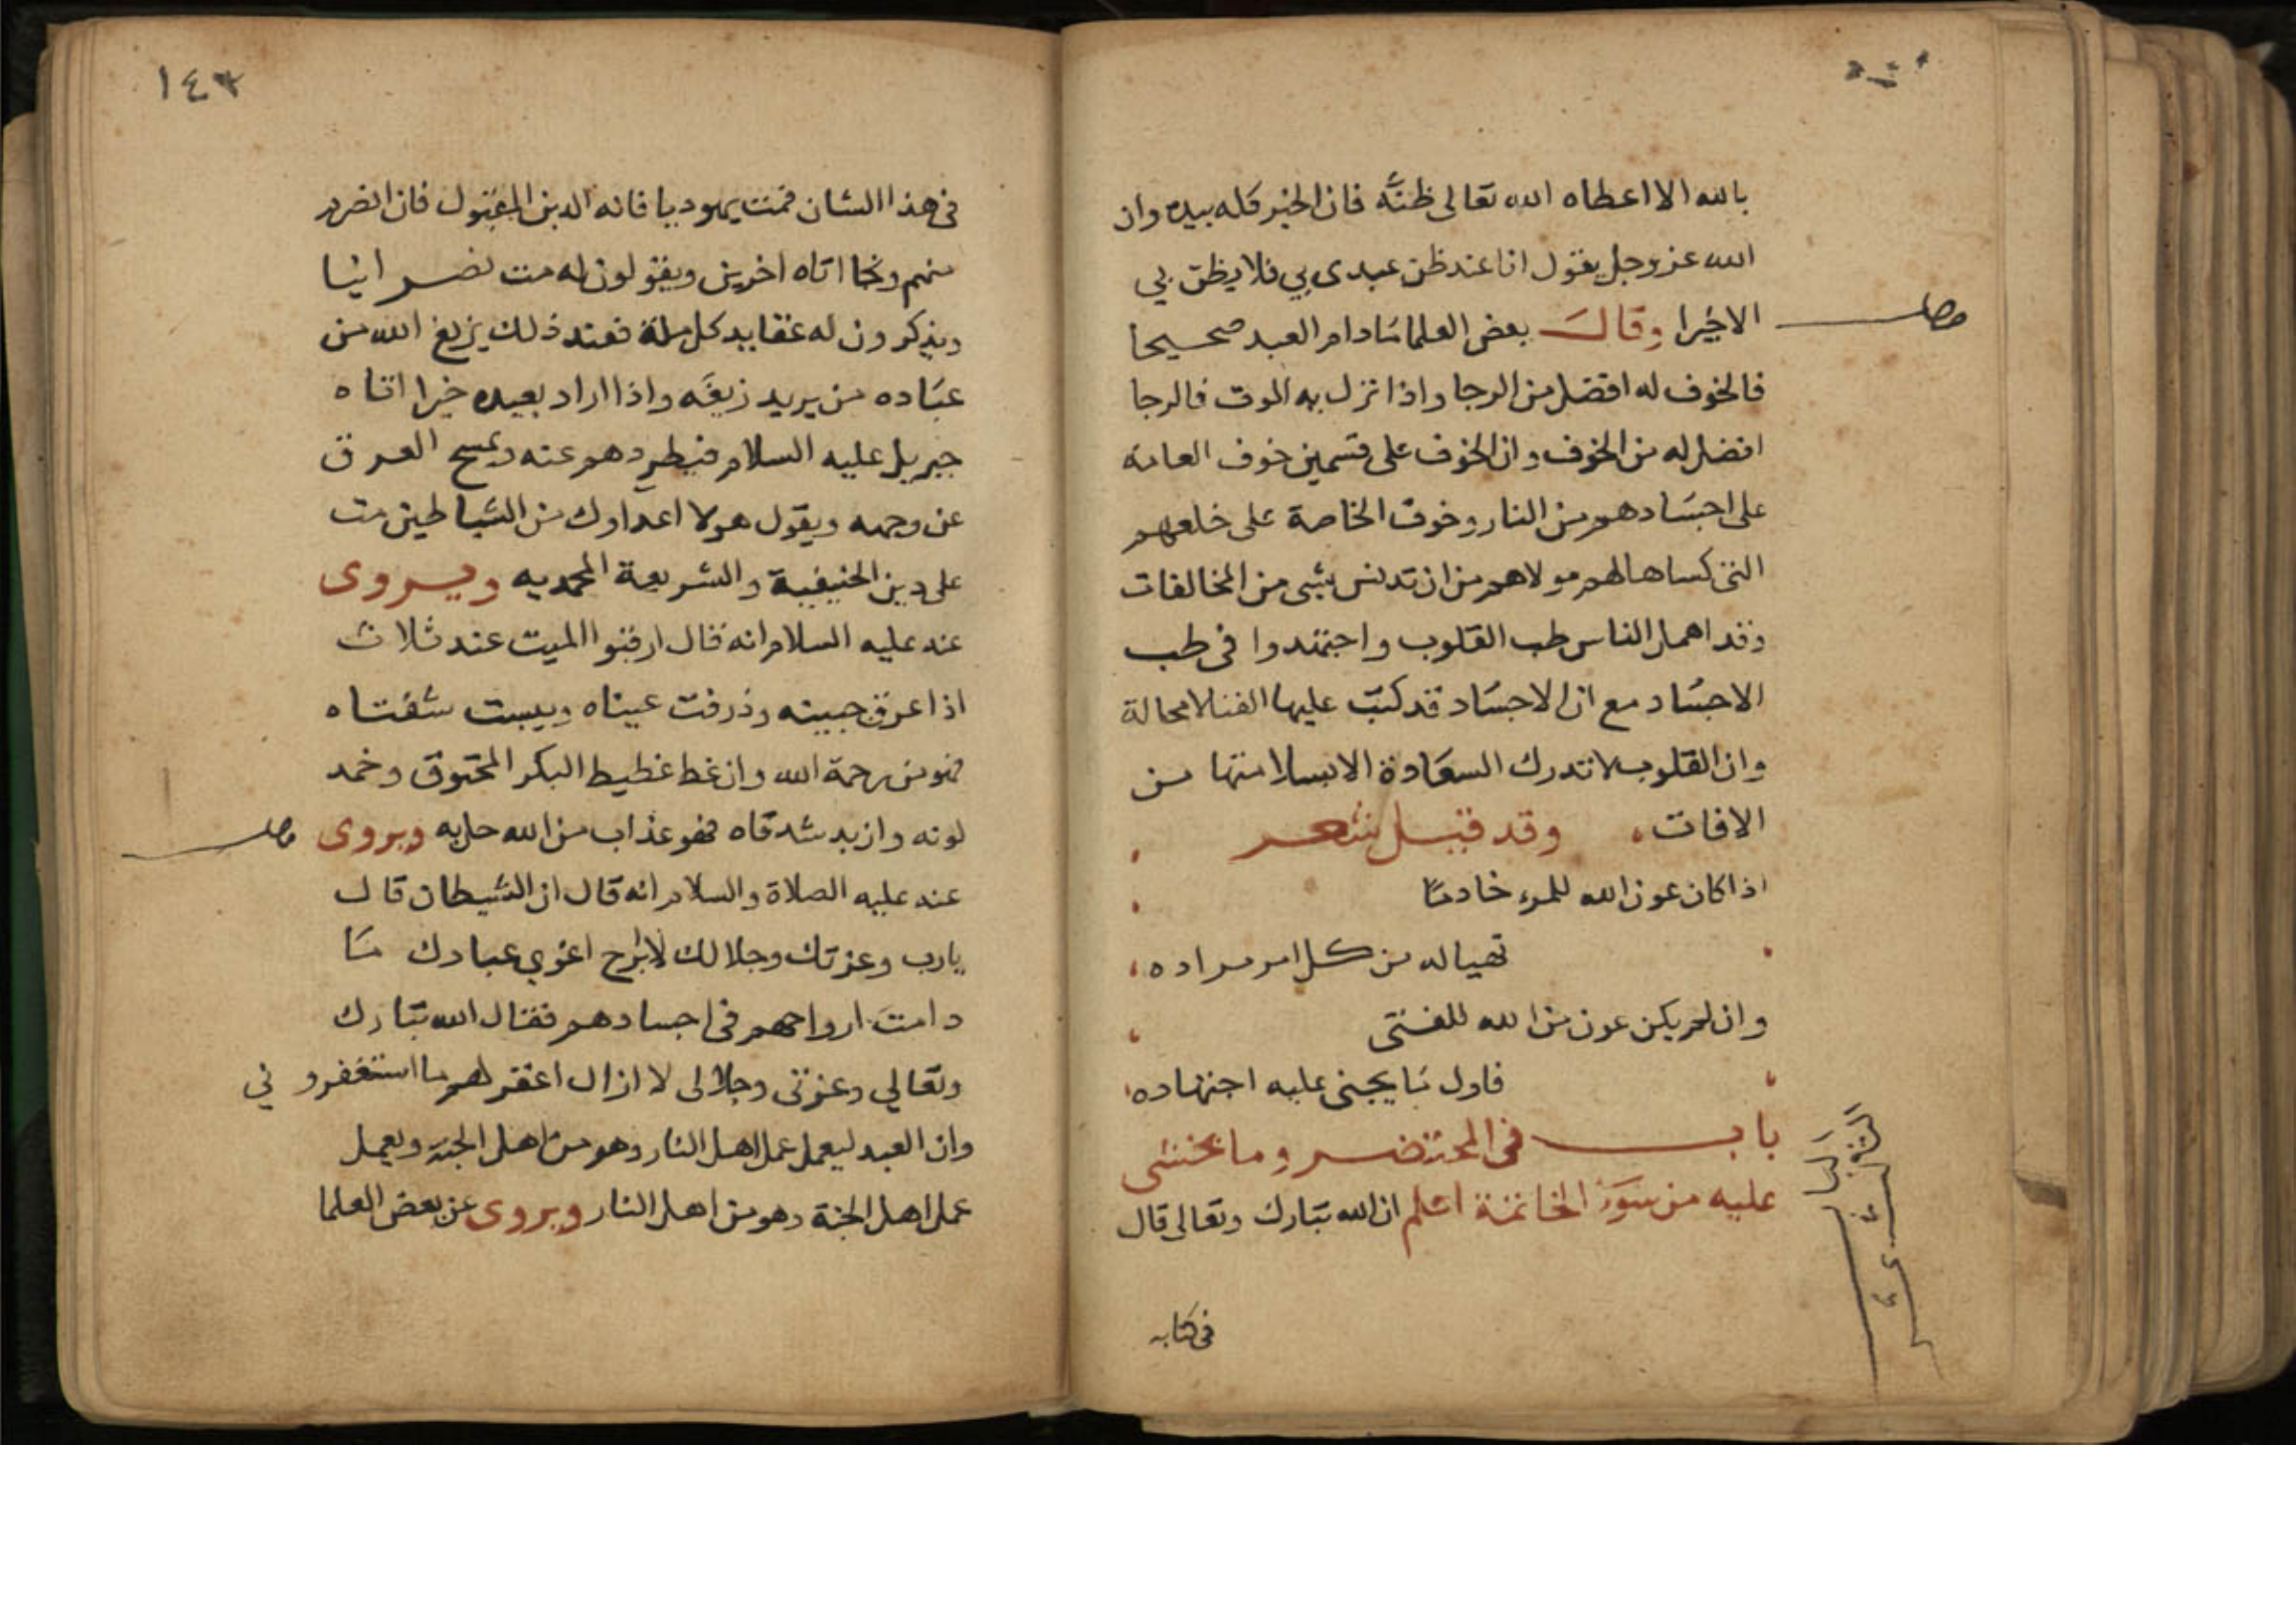 بالله الا اعطاه الله تعالى ظنَّه فان الخير كله بيده وان
الله عز وجل يقول انا عند ظن عبدى بي فلا يظن بي
الا خيرا وقال بعض العلما مادام العبد صحيحا
فالخوف له افضل من الرجا واذا نزل به الموت فالرجا
افضل له من الخوف وان الخوف على قسمين خوف العامة
على اجسادهم من النار وخوف الخاصة على خلعهم
التى كساها لهم مولاهم من ان تدنس بشى من المخالفات
وقد اهمل الناس طب القلوب واجتهدوا فى طب
الاجساد مع ان الاجساد قد كتب عليها الفنا لا محالة
وان القلوب لا تدرك السعادة الا بسلامتها من
الافات وقد قيل شعر
اذا كان عون الله للمرء خادما
تهيا له من كل امر مراده
وان لم يكن عون من الله للفتى
فاول ما يجنى عليه اجتهاده
باب فى المحتضر وما يخشى
عليه من سوء الخاتمة اعلم ان الله تبارك وتعالى قال
فى كتابه
١٤٣
فى هذا الشان فمت يهوديا فانه الدين المقبول فان انصرم
منهم ونجا اتاه اخرين ويقولون له مت نصرانيا
ويذكرون له عقايد كل ملة فعند ذلك يزيغ الله من
عباده من يريد زيغه واذا اراد بعبده خيرا اتاه
جبريل عليه السلام فيطردهم عنه ويمسح العرق
عن وجهه ويقول هولا اعداوك من الشياطين مت
على دين الحنيفية والشريعة المحمديه ويروى
عنه عليه السلام انه قال ارقبوا الميت عند ثلاث
اذا عرق جبينه وذرفت عيناه ويبست شفتاه
فهو من رحمة الله وان غط غطيط البكر المخنوق وخمد
لونه وازبد شدقاه فهو عذاب من الله حل به ويروى
عنه عليه الصلاة والسلام انه قال ان الشيطان قال
يارب وعزتك وجلالك لا ابرح اغوي عبادك ما
دامت ارواحهم فى اجسادهم فقال الله تبارك
وتعالي وعزتى وجلالى لا ازال اغفر لهم ما استغفروني
وان العبد ليعمل عمل اهل النار وهو من اهل الجنة ويعمل
عمل اهل الجنة وهو من اهل النار ويروى عن بعض العلما